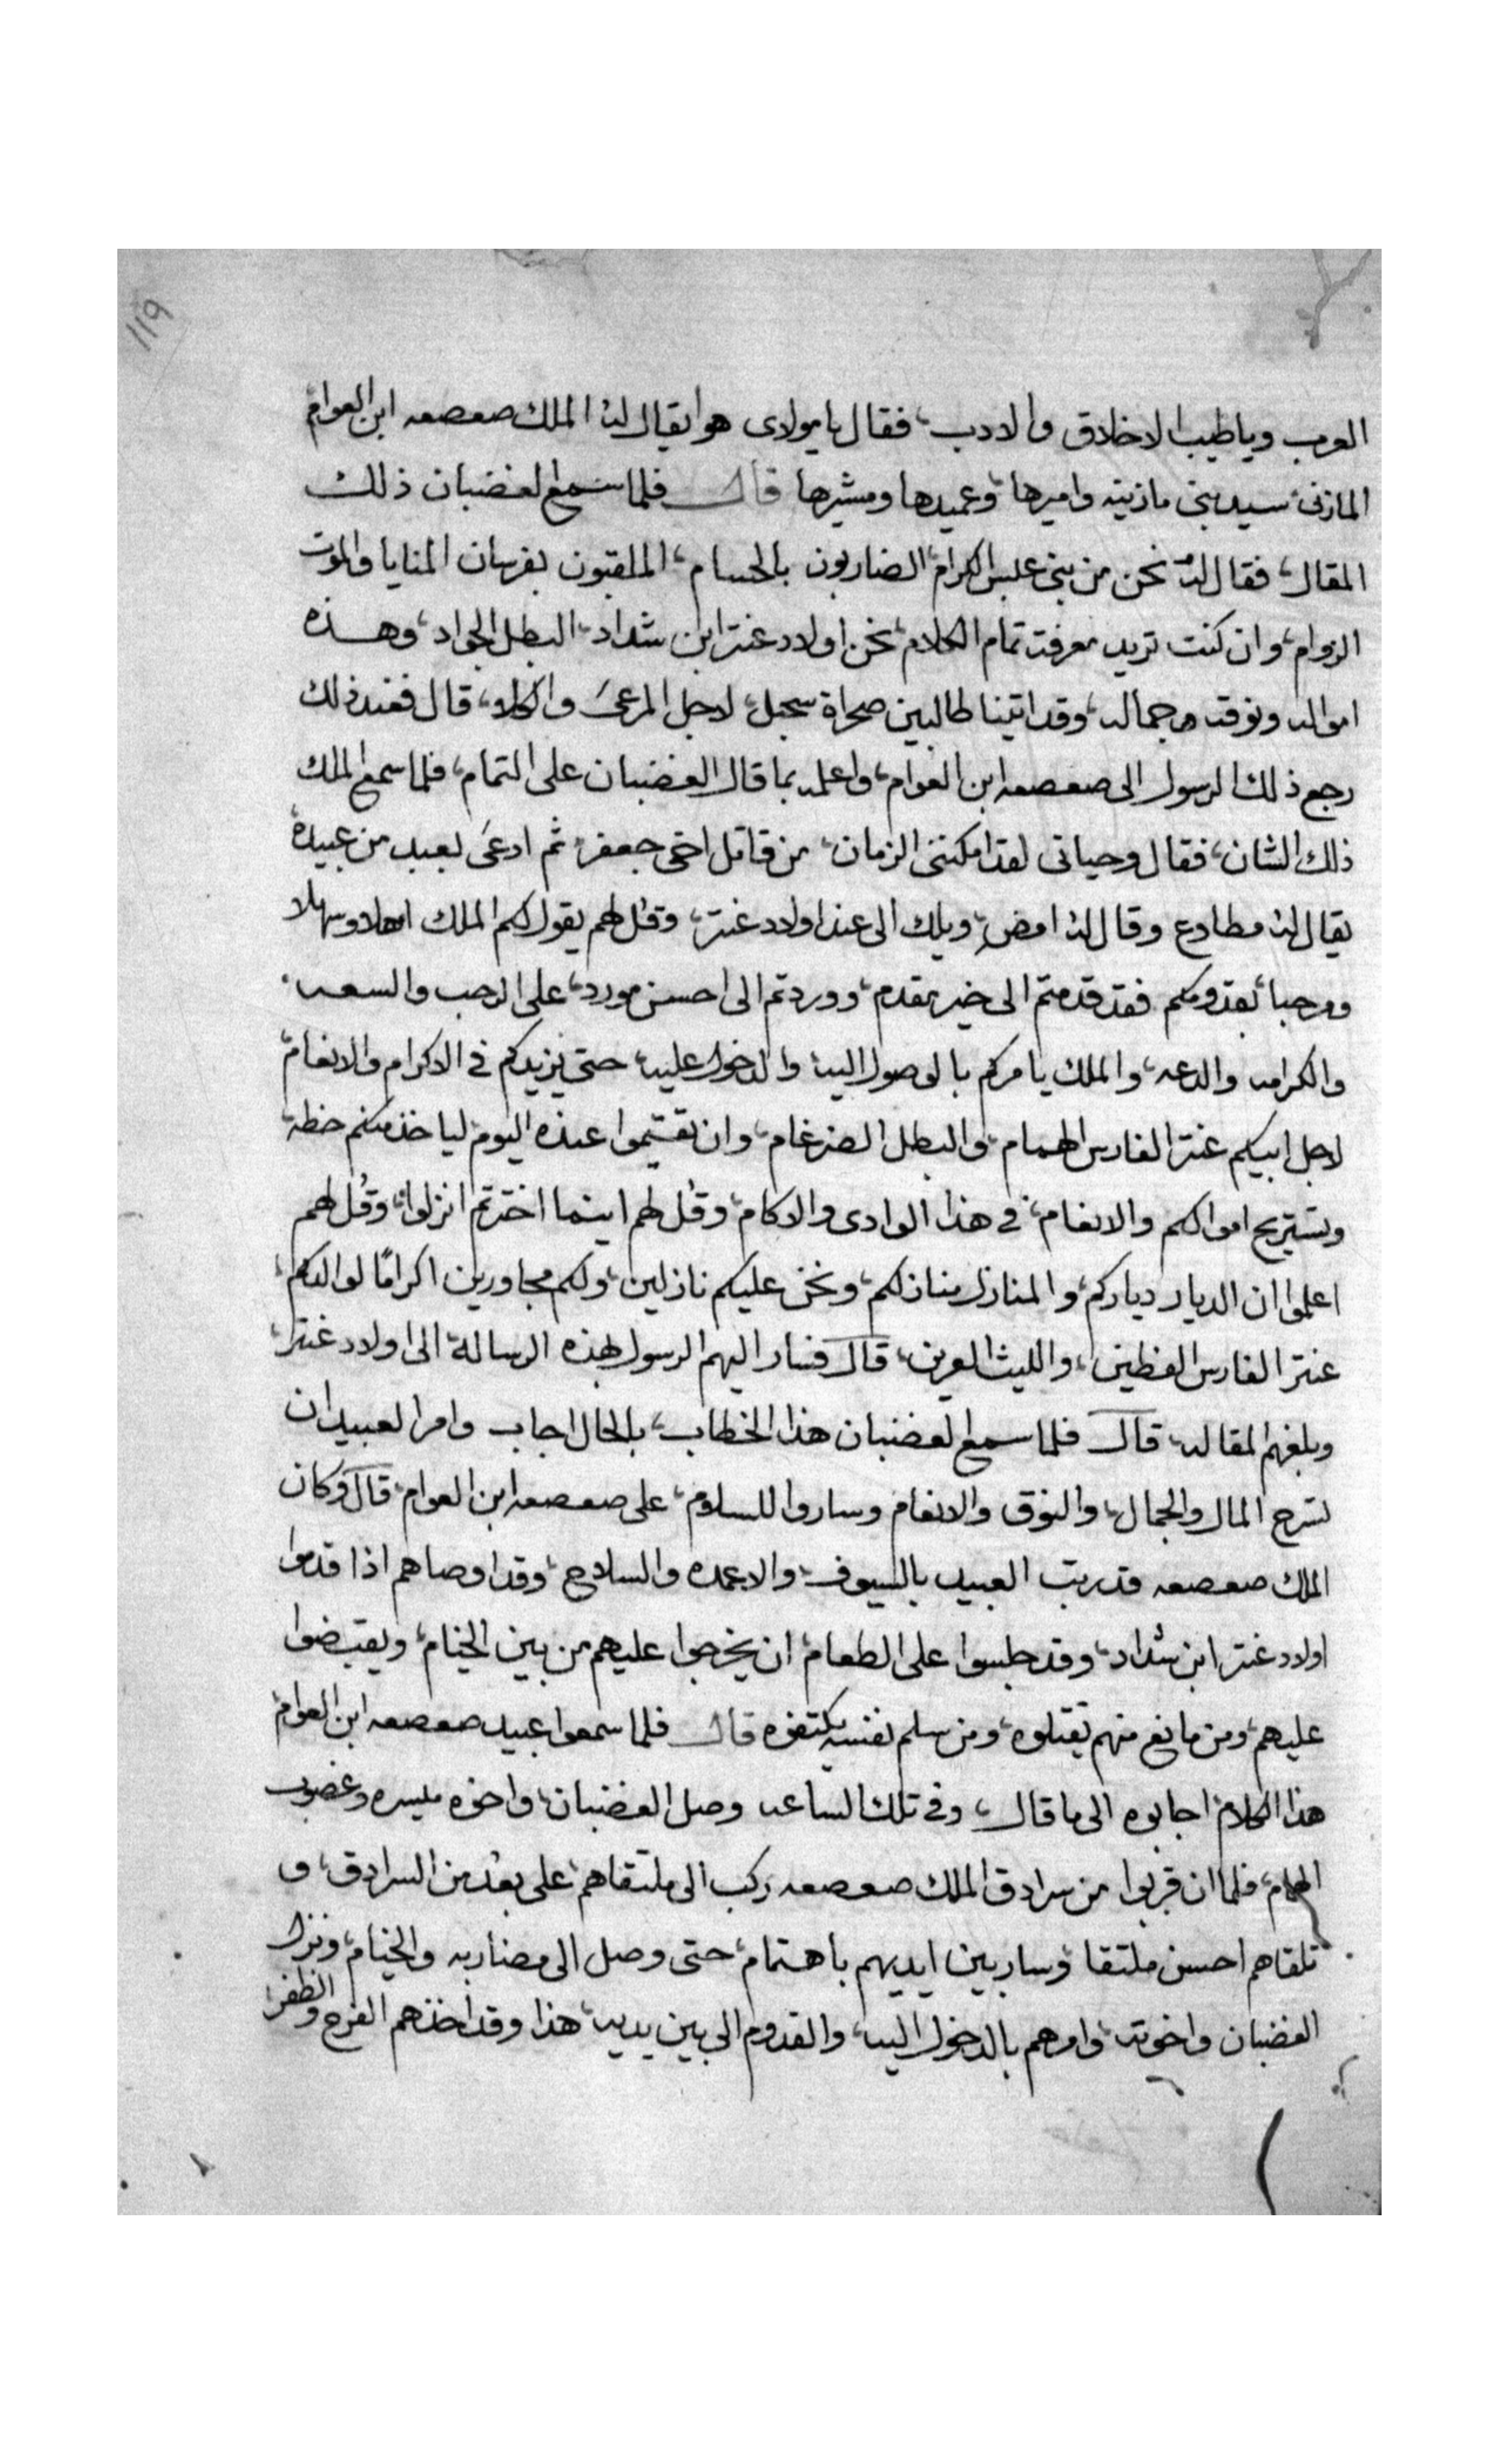 ١١٩
العرب وياطيب الاخلاق والادب، فقال يامولاى هو ايقال له الملك صعصعه ابن العوام
المازنى، سيد بنى مازنيه واميرها، وعميدها ومشيرها قال فلما سمع الغضبان ذلك
المقال، فقال له نحن من بنى عبس الكرام، الضاربون بالحسام، الملقبون بفرسان المنايا والموت
الزوام، وان كنت تريد معرفت تمام الكلام، نحن اولاد عنتر ابن شداد، البطل الجواد، وهذه
امواله ونوقه وجماله، وقد اتينا طالبين صحراة سجيل، لاجل المرعى والكلاء، قال فعند ذلك
رجع ذلك الرسول الى صعصعه ابن العوام، واعلمه بما قال الغضبان على التمام، فلما سمع الملك
ذلك الشان، فقال وحياتى لقد امكننى الزمان، من قاتل اخى جعفر، ثم ادعى بعبد من عبيده
يقال له مطاوع وقال له امضِ، ويلك الى عند اولاد عنتر، وقل لهم يقول لكم الملك اهلا وسهلا
ومرحبا، بقدومكم فقد قدمتم الى خير مقدم، ووردتم الى احسن مورد، على الرحب والسعه.
والكرامه والدعه، والملك يامركم بالوصول اليه، والدخول عليه، حتى يزيدكم فى الاكرام والانعام،
لاجل ابيكم عنتر الفارس الهمام، والبطل الضرغام، وان تقيموا عنده اليوم لياخذ منكم حظه،
وتستريح اموالكم والانعام، فى هذا الوادى والاكام، وقل لهم اينما اخترتم انزلوا، وقل لهم
اعلموا ان الديار دياركم، والمنازل منازلكم، ونحن عليكم نازلين، ولكم مجاورين اكرامًا لوالدكم،
عنتر الفارس الفظين، والليث العرين، قال فسار اليهم الرسول بهذه الرسالة الى اولاد عنتر،
وبلغهم المقاله، قال فلما سمع الغضبان هذا الخطاب، بالحال اجاب وامر العبيد ان
تسرح المال والجمال، والنوق والانعام وساروا للسلام، على صعصعه ابن العوام، قال وكان
الملك صعصعه قد رتب العبيد بالسيوف، والاعمده والسلاح، وقد اوصاهم اذا قدموا
اولاد عنتر ابن شداد، وقد جلسوا على الطعام، ان يخرجوا عليهم من بين الخيام، ويقبضوا
عليهم، ومن مانع منهم يقتلوه، ومن سلم نفسه يكتفوه قال فلما سمعوا عبيد صعصعه ابن العوام،
هذا الكلام، اجابوه الى ما قال، وفى تلك الساعه وصل الغضبان، واخوه ميسره وغصوب
الهمام، فلما ان قربوا من سرادق الملك صعصعه ركب الى ملتقاهم، على بعد من السرادق، و
تلقاهم احسن ملتقا، وسار بين ايديهم باهتمام، حتى وصل الى مضاربه والخيام، ونزل
الغضبان واخوته، وامرهم بالدخول اليه، والقدوم الى بين يديه، هذا وقد اخذهم الفرح والظفر